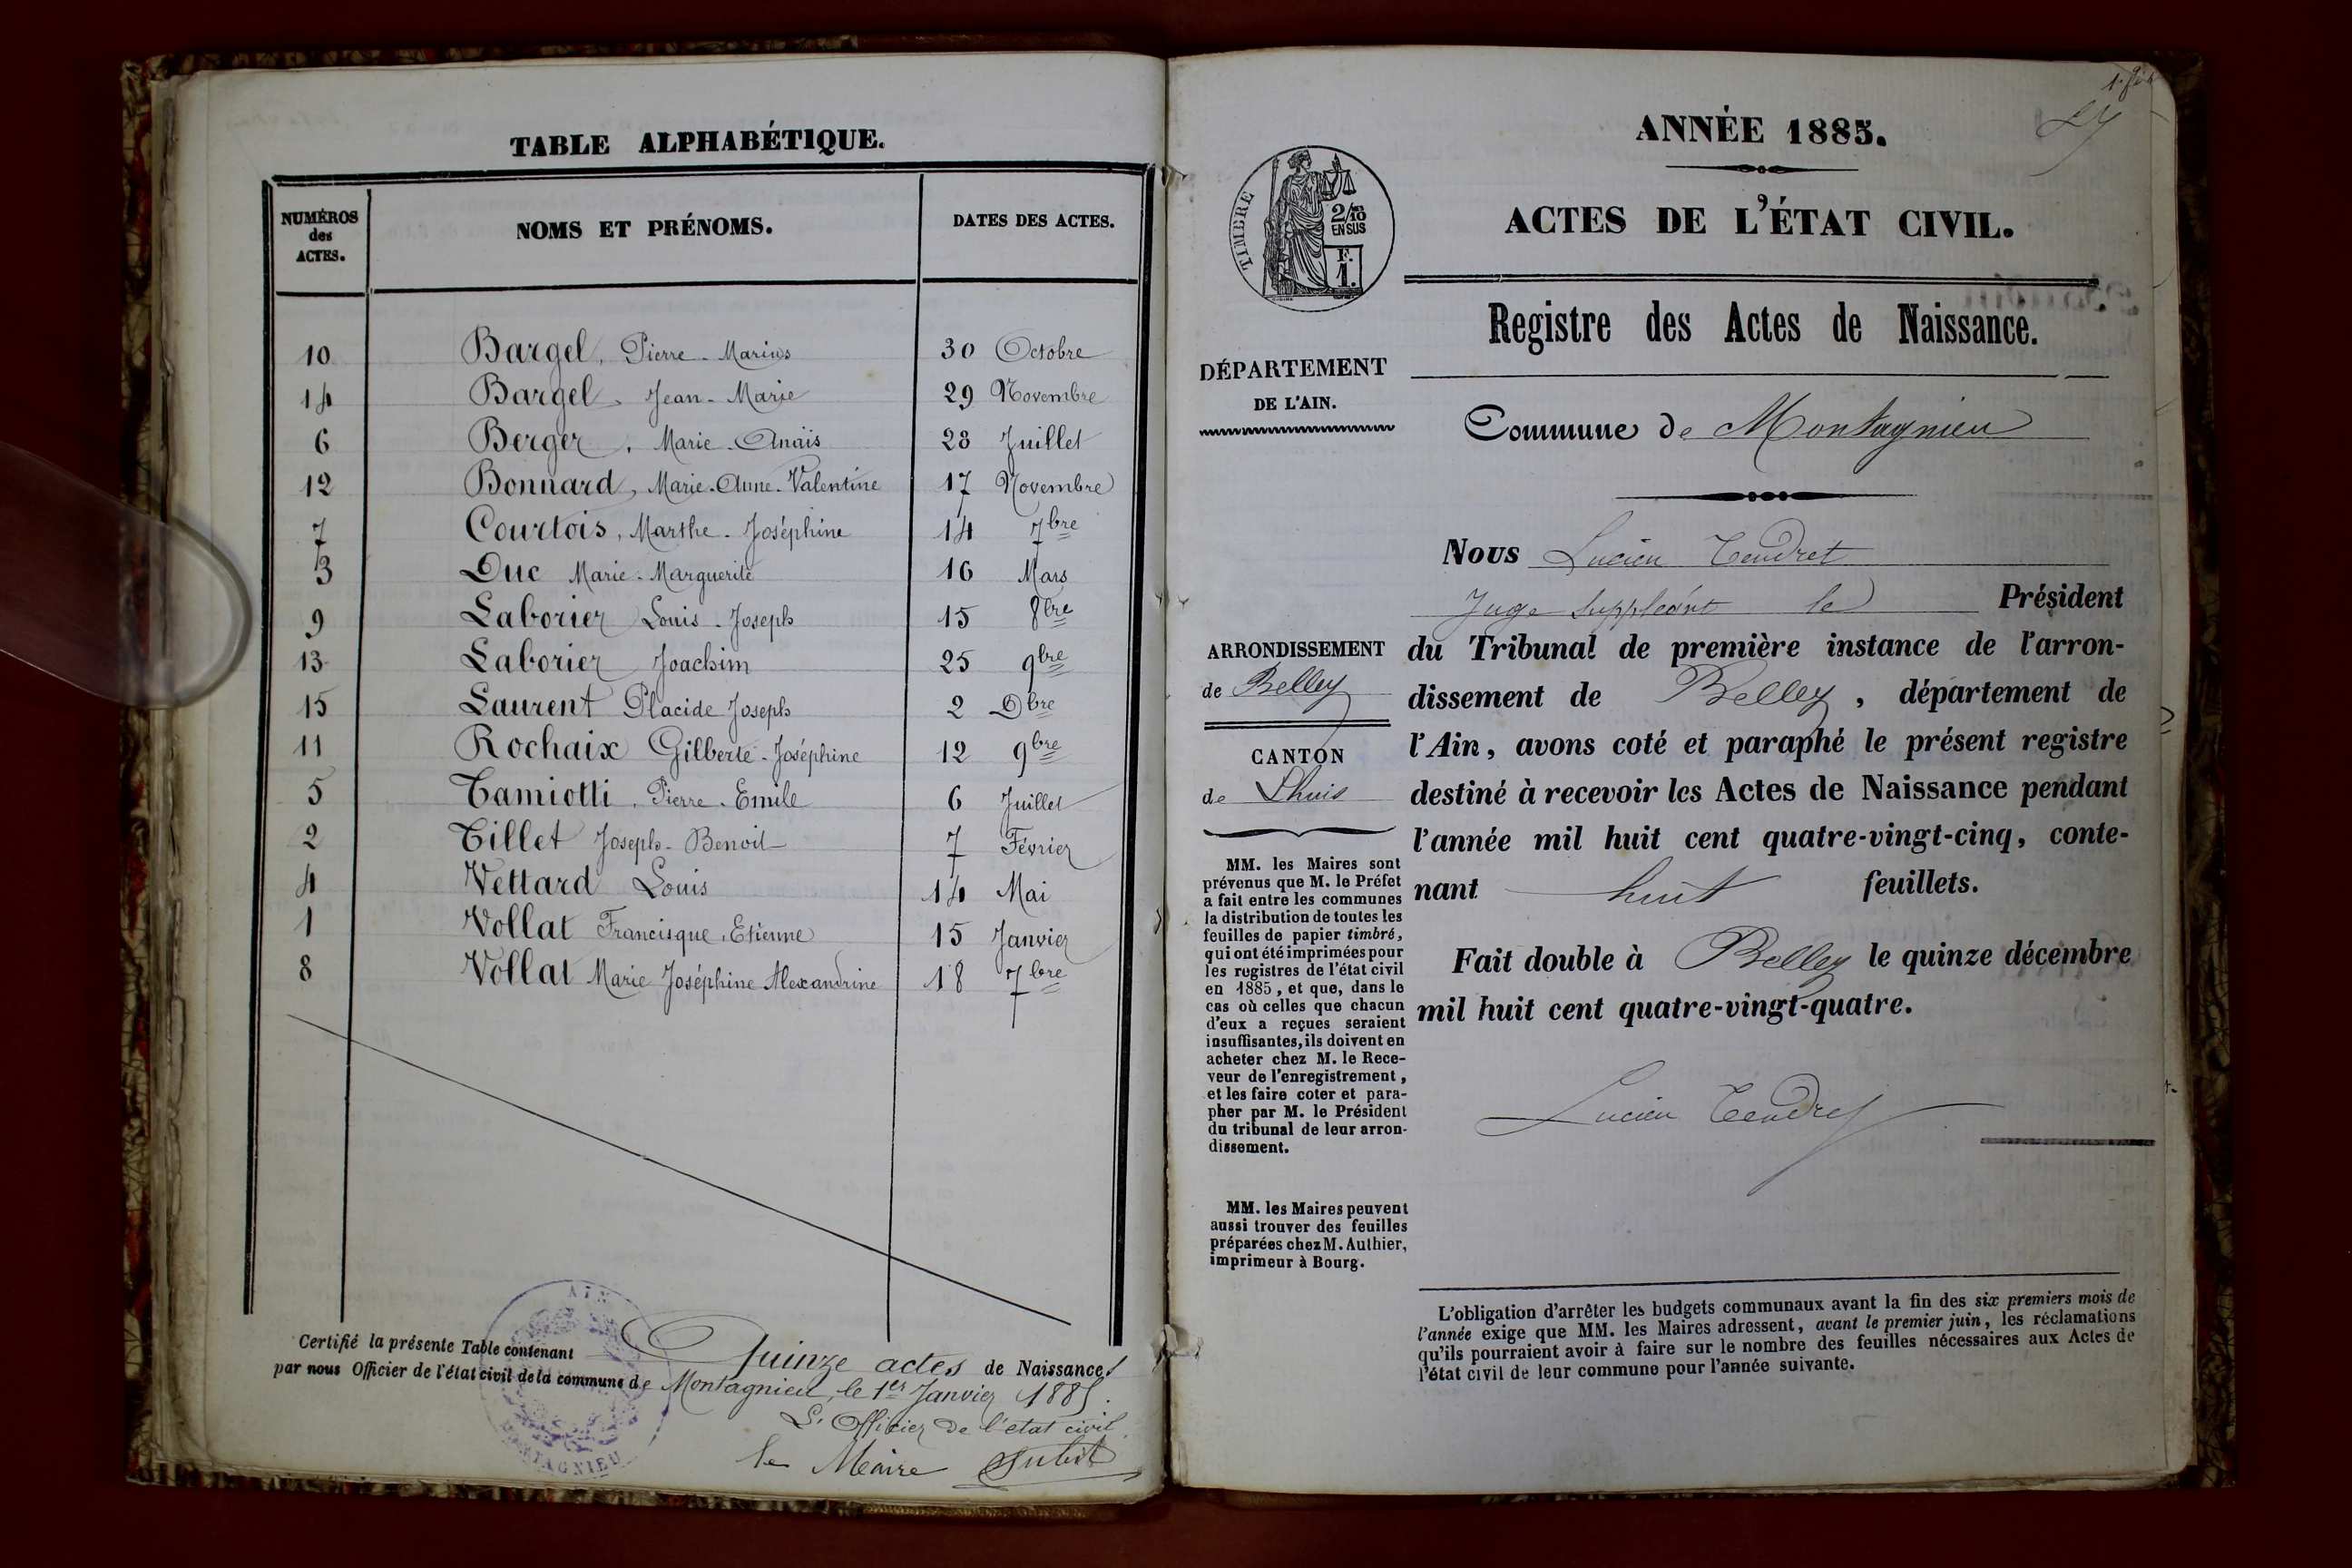 TABLE ALPHABÉTIQUE.
NUMÉROS des ACTES. NOMS ET PRÉNOMS. DATES DES ACTES.
10 Bargel, Pierre-Marius 30 Octobre
14 Bargel, Jean-Marie 29 Novembre
6 Berger, Marie-Anaïs 28 Juillet
12 Bonnard, Marie-Anne-Valentine 17 Novembre
7 Courtois, Marthe-Joséphine 14 7bre
3 Duc Marie-Marguerite 16 Mars
9 Laborier Louis-Joseph 15 8bre
13 Laborier Joachim 25 9bre
15 Laurent Placide Joseph 2 Dbre
11 Rochaix Gilberte-Joséphine 12 9bre
5 Tamiotti, Pierre-Emile 6 Juillet
2 Tillet Joseph-Benoit 7 Février
4 Vettard Louis 14 Mai
1 Vollat Francisque, Etienne 15 Janvier
8 Vollat Marie Joséphine Alexandrine 18 7bre
Certifié la présente Table contenant Quinze actes de Naissance,
par nous Officier de l'état civil de la commune de Montagnieu, le 1er Janvier 1885.
L'Officier de l'état civil
le Maire
AIN
MONTAGNIEU
ANNÉE 1885.
TIMBRE
2/10 EN SUS
F. 1.
ACTES DE L'ÉTAT CIVIL.
Registre des Actes de Naissance.
DÉPARTEMENT
DE L'AIN.
Commune de Montagnieu
Nous Lucien Tendret
Juge suppléant le Président
ARRONDISSEMENT
de Belley
CANTON
de Lhuis
du Tribunal de première instance de l'arron-
dissement de Belley, département de
l'Ain, avons coté et paraphé le présent registre
destiné à recevoir les Actes de Naissance pendant
l'année mil huit cent quatre-vingt-cinq, conte-
nant huit feuillets.
Fait double à Belley le quinze décembre
mil huit cent quatre-vingt-quatre.
Lucien Tendret
MM. les Maires sont
prévenus que M. le Préfet
a fait entre les communes
la distribution de toutes les
feuilles de papier timbré,
qui ont été imprimées pour
les registres de l'état civil
en 1885, et que, dans le
cas où celles que chacun
d'eux a reçues seraient
insuffisantes, ils doivent en
acheter chez M. le Rece-
veur de l'enregistrement,
et les faire coter et para-
pher par M. le Président
du tribunal de leur arron-
dissement.
MM. les Maires peuvent
aussi trouver des feuilles
préparées chez M. Authier,
imprimeur à Bourg.
L'obligation d'arrêter les budgets communaux avant la fin des six premiers mois de
l'année exige que MM. les Maires adressent, avant le premier juin, les réclamations
qu'ils pourraient avoir à faire sur le nombre des feuilles nécessaires aux Actes de
l'état civil de leur commune pour l'année suivante.